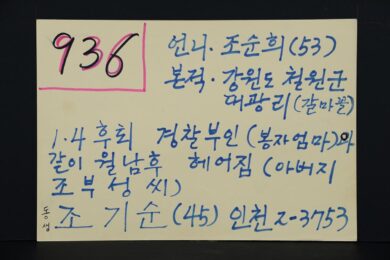 936
언니·조순희(53)
본적·강원도 철원군
대광리(갈마꼴)
1·4후퇴 경찰부인(봉자엄마)와
같이 월남후 헤어짐(아버지
조부성씨)
동생 조기순(45) 인천 2-3753